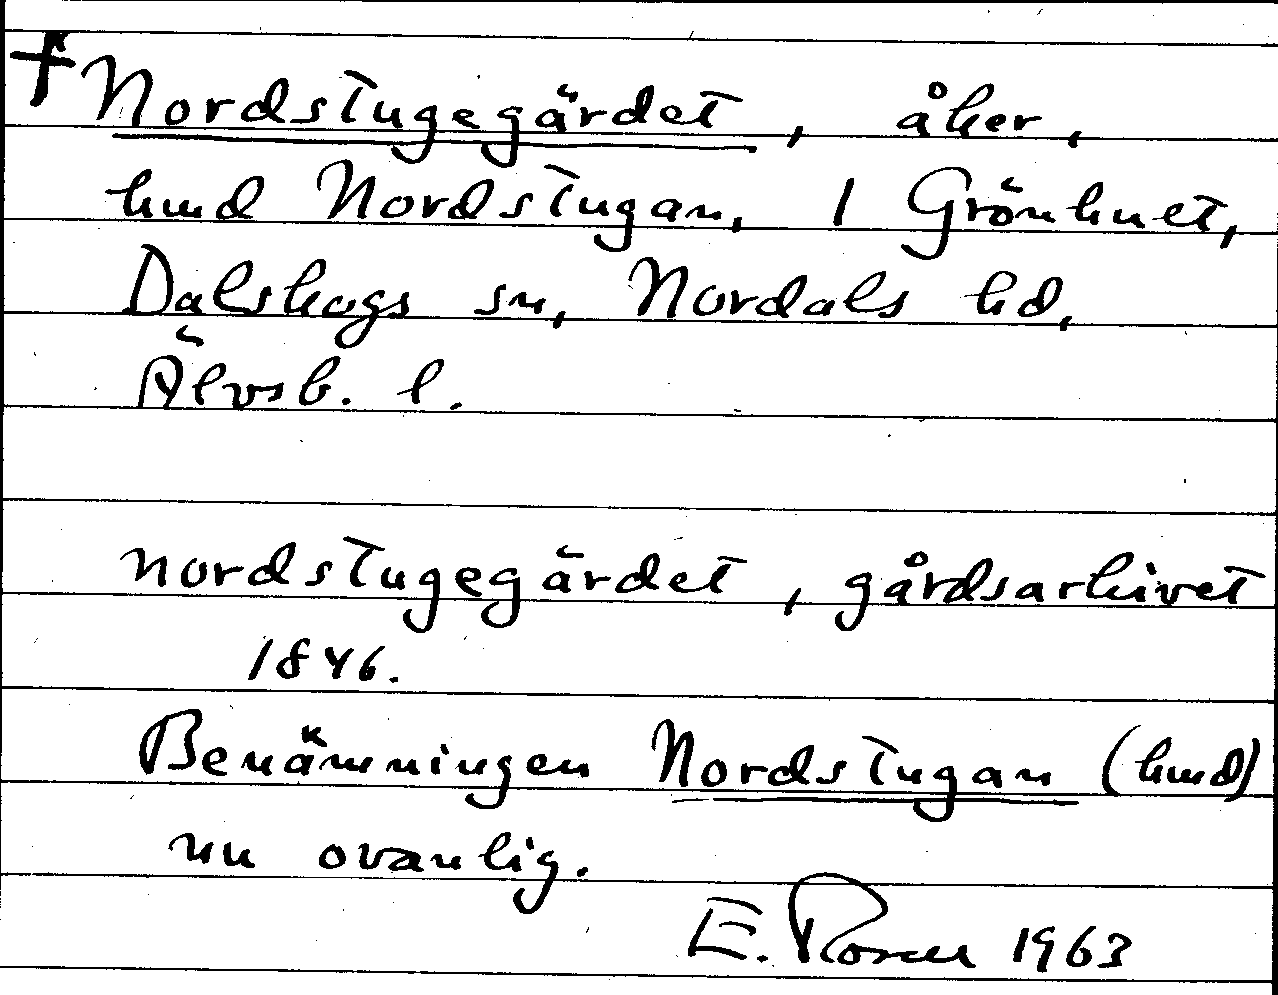 † Nordstugegärdet, åker,
hmd Nordstugan, 1 Grönhuet,
Dalskogs sn, Nordals hd,
Älvsb. l.
nordstugegärdet, gårdsarkivet
1846.
Benämningen Nordstugan (hmd)
nu ovanlig.
E. Rosell 1963